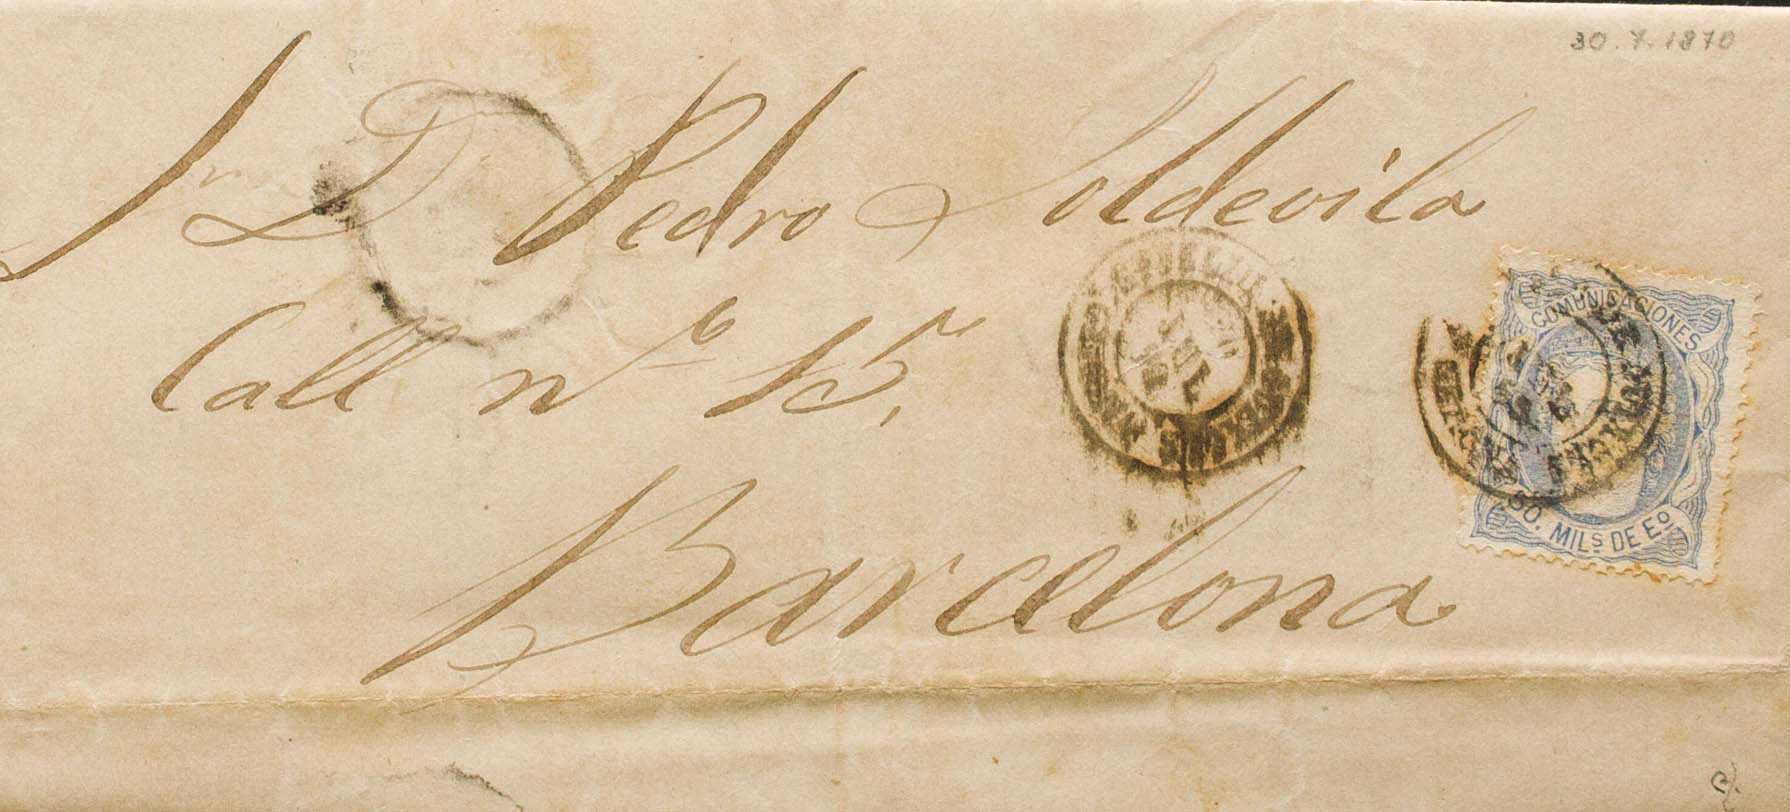 30.7.1870
Sr. D Pedro Soldevila
Call nº 15.
Barcelona
COMUNICACIONES
50. MILS DE Eº